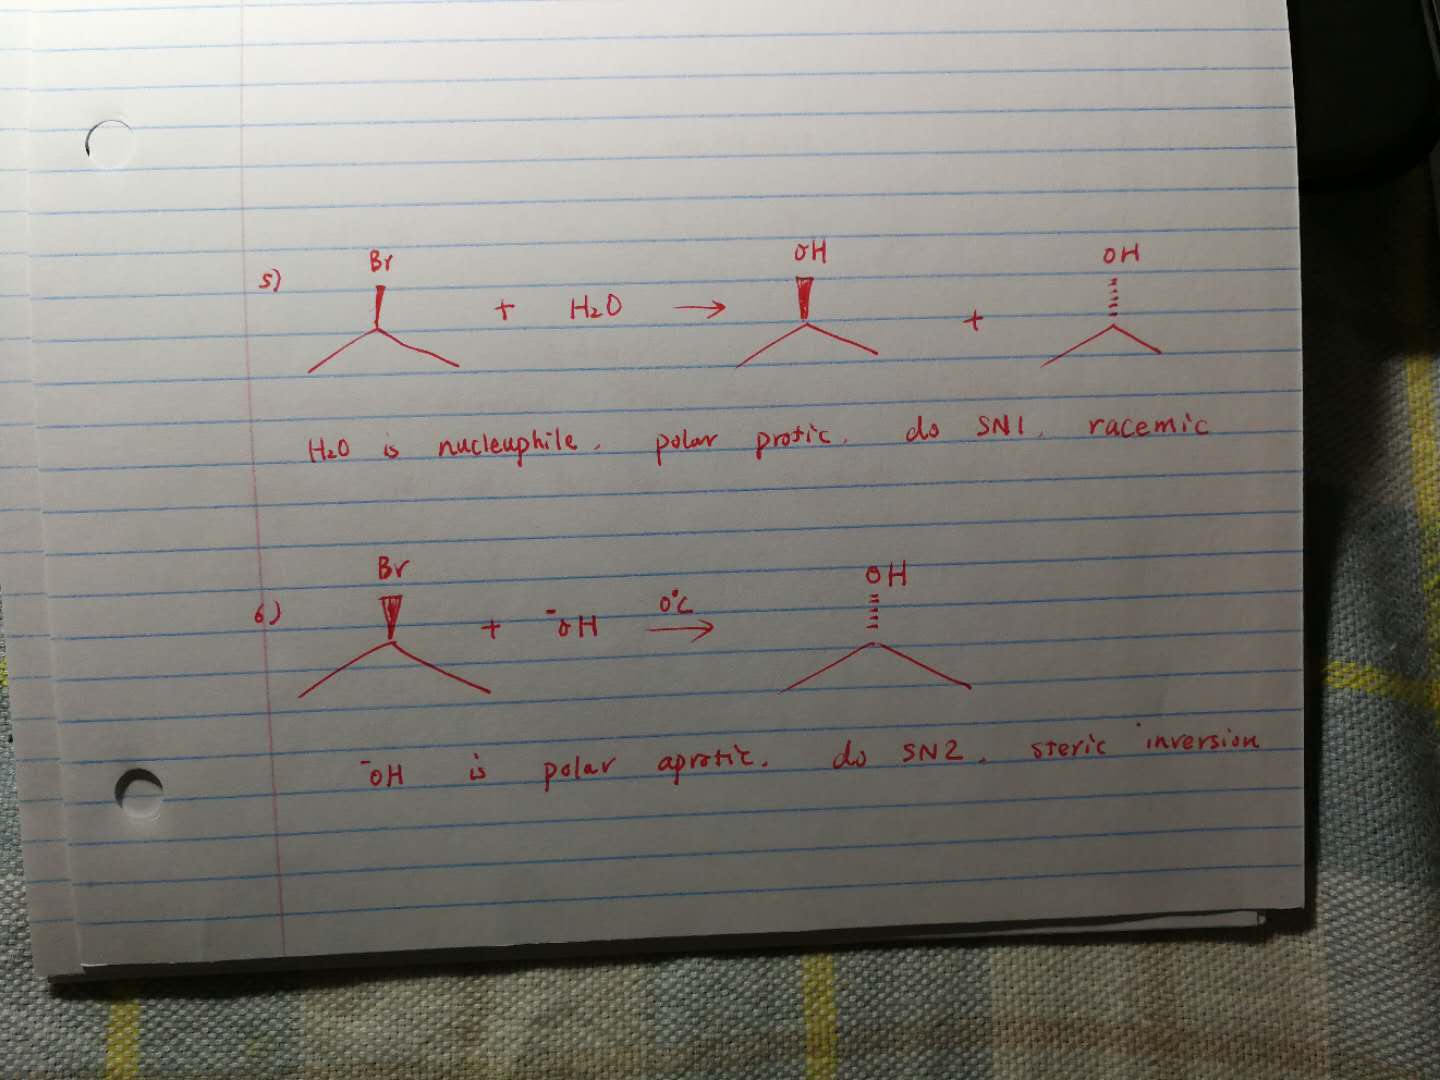 Br OH OH
5) + H2O → +
H2O is nucleuphile, polar protic, do SN1, racemic
Br OH
6) + ⁻OH 0°C →
⁻OH is polar aprotic, do SN2, steric inversion